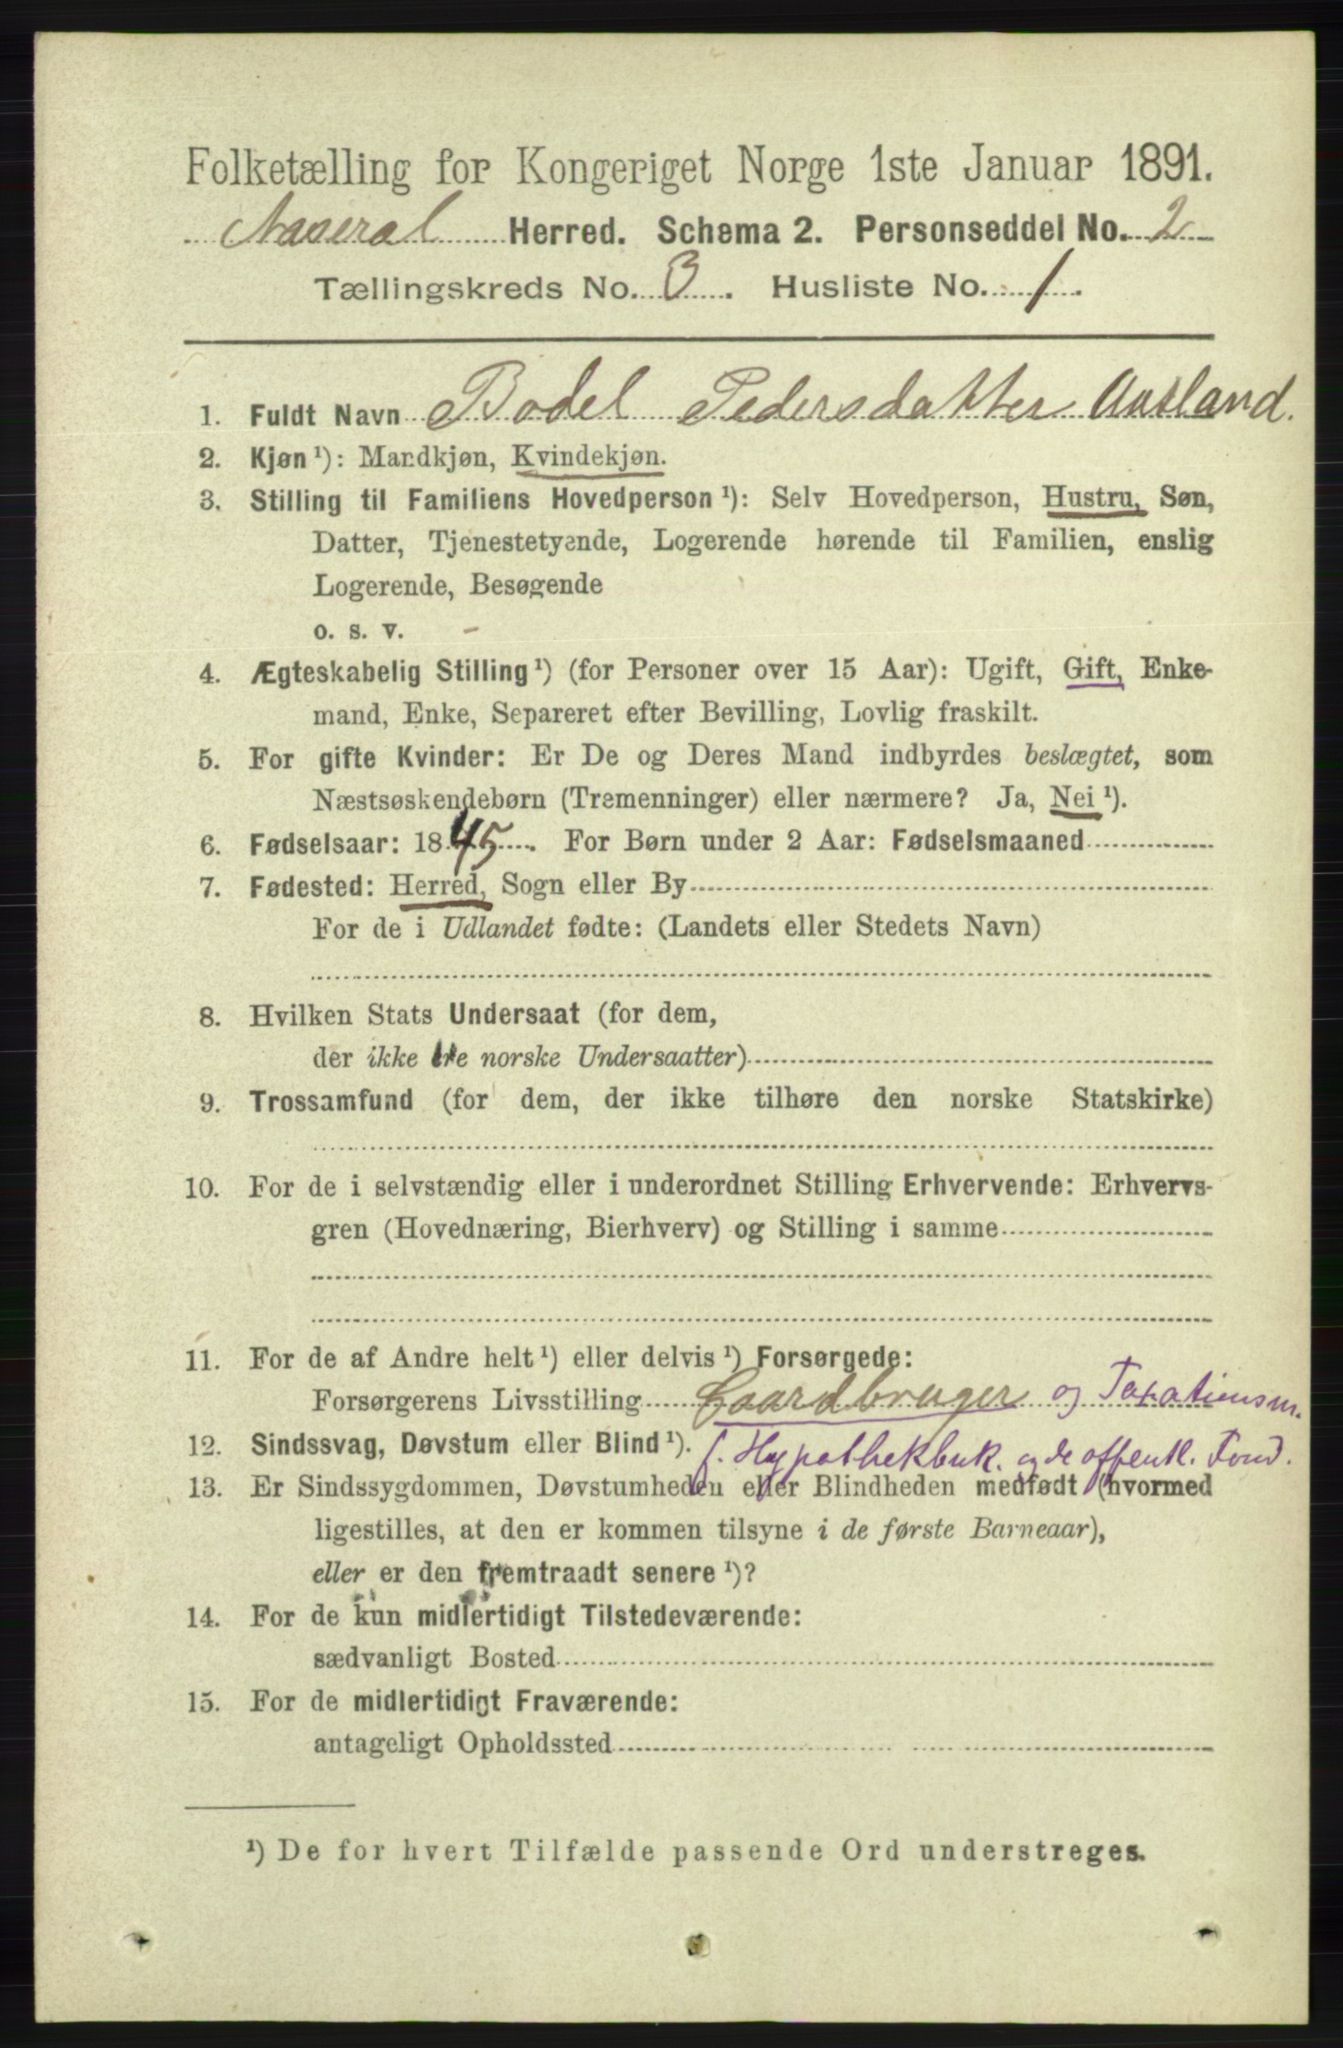 Folketælling for Kongeriget Norge 1ste Januar 1891.
Aaseral Herred. Schema 2. Personseddel No. 2
Tællingskreds No. 3. Husliste No. 1.
1. Fuldt Navn Bodel Pedersdatter Aasland.
2. Kjøn ¹): Mandkjøn, Kvindekjøn.
3. Stilling til Familiens Hovedperson ¹): Selv Hovedperson, Hustru, Søn,
Datter, Tjenestetyende, Logerende hørende til Familien, enslig
Logerende, Besøgende
o. s. v. -
4. Ægteskabelig Stilling ¹) (for Personer over 15 Aar): Ugift, Gift, Enke-
mand, Enke, Separeret efter Bevilling, Lovlig fraskilt.
5. For gifte Kvinder: Er De og Deres Mand indbyrdes beslægtet, som
Næstsøskendebørn (Tremenninger) eller nærmere? Ja, Nei ¹).
6. Fødselsaar: 1845. For Børn under 2 Aar: Fødselsmaaned
7. Fødested: Herred, Sogn eller By
For de i Udlandet fødte: (Landets eller Stedets Navn)
8. Hvilken Stats Undersaat (for dem,
der ikke ere norske Undersaatter)
9. Trossamfund (for dem, der ikke tilhøre den norske Statskirke)
10. For de i selvstændig eller i underordnet Stilling Erhvervende: Erhvervs-
gren (Hovednæring, Bierhverv) og Stilling i samme
11. For de af Andre helt ¹) eller delvis ¹) Forsørgede:
Forsørgerens Livsstilling Gaardbruger og Taxationsm.
12. Sindssvag, Døvstum eller Blind ¹). f. Hypothekbnk. og de offentl. Fond.
13. Er Sindssygdommen, Døvstumheden eller Blindheden medfødt (hvormed
ligestilles, at den er kommen tilsyne i de første Barneaar),
eller er den fremtraadt senere ¹)?
14. For de kun midlertidigt Tilstedeværende:
sædvanligt Bosted
15. For de midlertidigt Fraværende:
antageligt Opholdssted
¹) De for hvert Tilfælde passende Ord understreges.